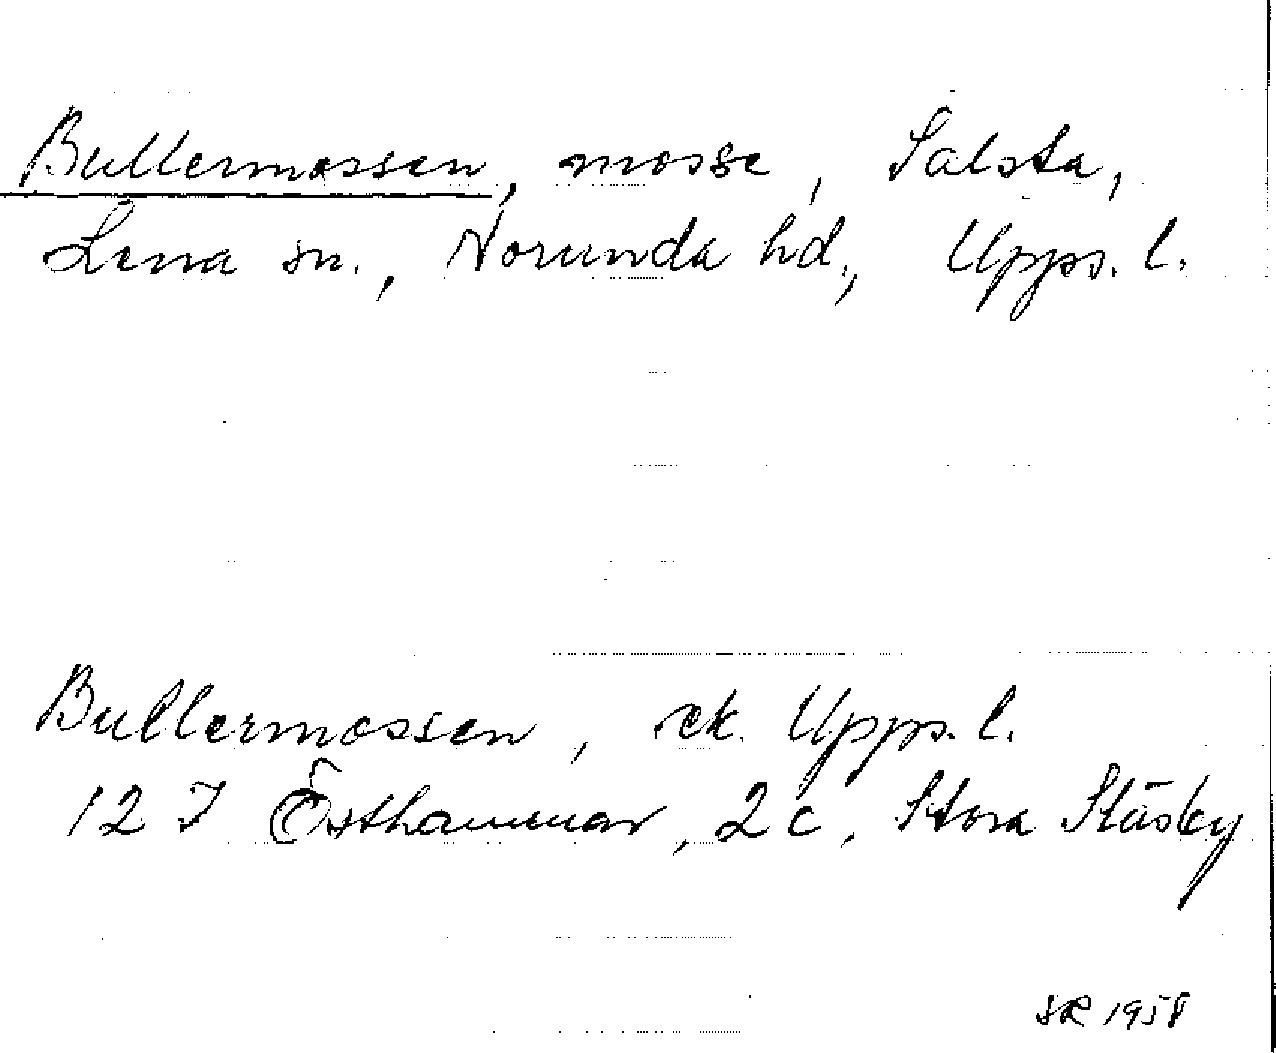 Bullermossen, mosse, Salsta,
Lena sn., Norunda hd., Upps. l.
Bullermossen, ek. Upps. l.
12 I Östhammar, 2 c, Stora Stäsby
SR 1958